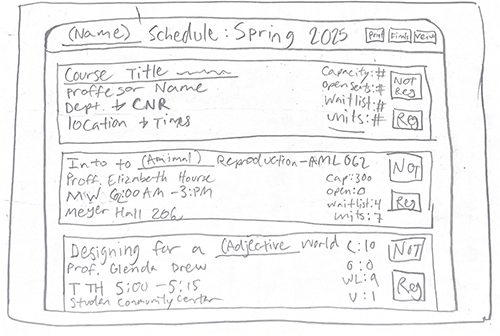 (Name) Schedule: Spring 2025 Print Email View
Course Title
Proffesor Name
Dept. & CNR
location & Times
Capacity:#
Open Seats:#
Waitlist:#
units:#
NOT Reg
Reg
Into to (Animal) Reproduction-AML 062
Proff. Elizabeth House
MW 6:00 AM - 3:PM
Meyer Hall 206
Cap:300
open:0
waitlist:4
units:7
NOT
Reg
Designing for a (Adjective) World
Prof. Glenda Drew
T TH 5:00 - 5:15
Studen Community Center
C:10
O:0
WL:9
U:1
NOT
Reg